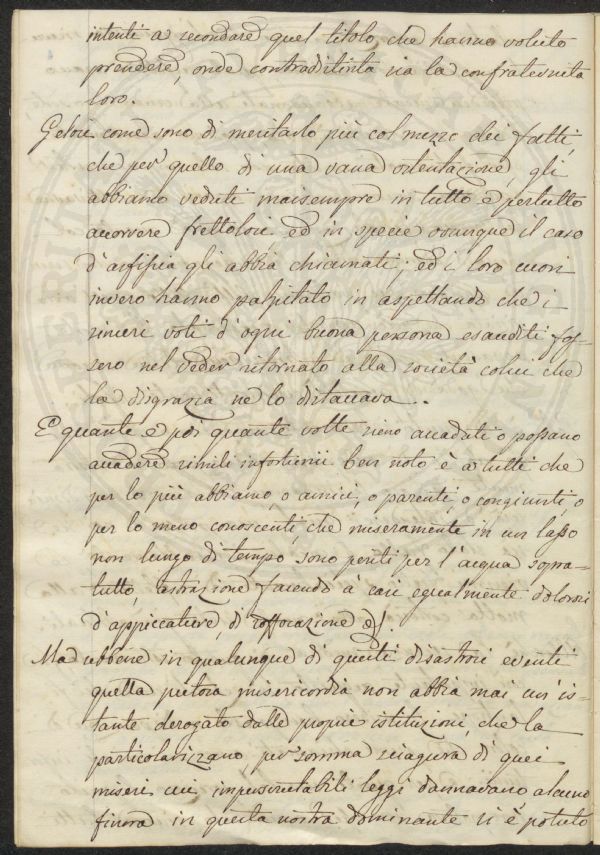 intenti a secondare quel titolo che hanno voluto
prendere, onde contradistinta sia la confraternita
loro.
Gelosi come sono di meritarlo più col mezzo dei fatti,
che per quello di una vana ostentazione, gli
abbiamo veduti maisempre in tutto e pertutto
accorrere frettolosi, ed in specie ovunque il caso
d'asfisia gli abbia chiamati; ed i loro cuori
invero hanno palpitato in aspettando che i
sinceri voti d'ogni buona persona esauditi fos=
sero nel veder ritornato alla società colui che
la disgrazia ne lo distaccava.
E quante e poi quante volte sieno accaduti o possano
accadere simili infortunii ben noto è a tutti che
per lo più abbiamo, o amici, o parenti, o congiunti, o
per lo meno conoscenti, che miseramente in un lasso
non lungo di tempo sono periti per l'acqua sopra-
tutto, astrazione facendo à casi egualmente dolorosi
d'appiccature, di soffocazione &c.
Ma sebbene in qualunque di questi disastrosi eventi
quella pietosa misericordia non abbia mai un'is=
tante derogato dalle proprie istituzioni, che la
particolarizzano, per somma sciagura di quei
miseri cui imperscrutabili leggi dannavano alcuno
finora in questa nostra dominante si è potuto